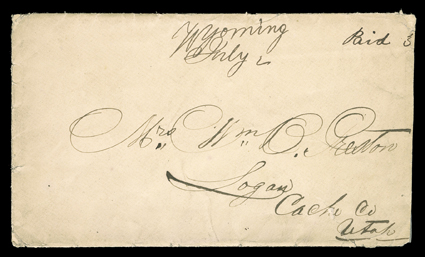 Wyoming
July 2
Paid 3
Mrs. Wm. B. Preston
Logan
Cache Co
Utah